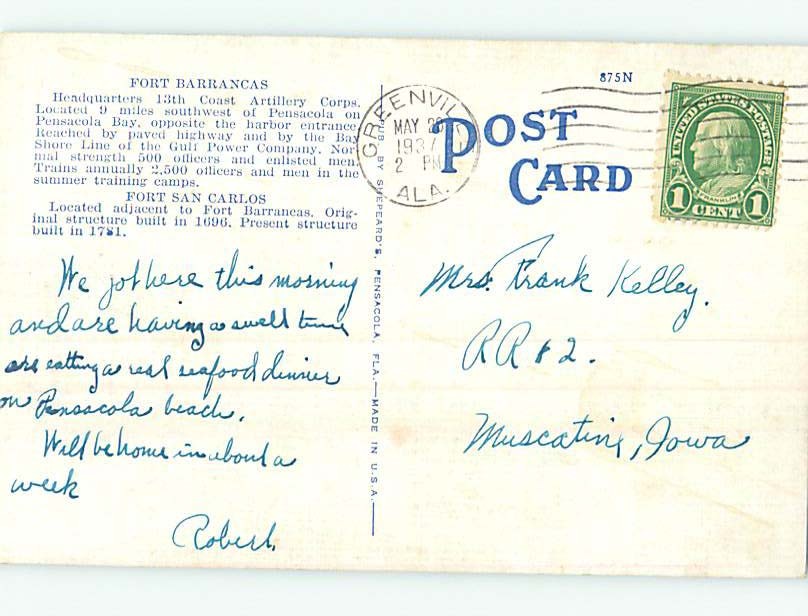 875N
FORT BARRANCAS
Headquarters 13th Coast Artillery Corps.
Located 9 miles southwest of Pensacola on
Pensacola Bay, opposite the harbor entrance
Reached by paved highway and by the Bay
Shore Line of the Gulf Power Company. Nor-
mal strength 500 officers and enlisted men
Trains annually 2,500 officers and men in the
summer training camps.
FORT SAN CARLOS
Located adjacent to Fort Barrancas. Orig-
inal structure built in 1696. Present structure
built in 1781.
We got here this morning
and are having a swell time
are eatting a real seafood dinner
on Pensacola beach.
Will be home in about a
week
Robert.
BY SHEPEARD'S, PENSACOLA, FLA.—MADE IN U.S.A.
GREENVIL
MAY
193
2 PM
ALA.
POST
CARD
UNITED STATES POSTAGE
FRANKLIN
1 CENT 1
Mrs. Frank Kelley.
RR # 2.
Muscatine, Iowa